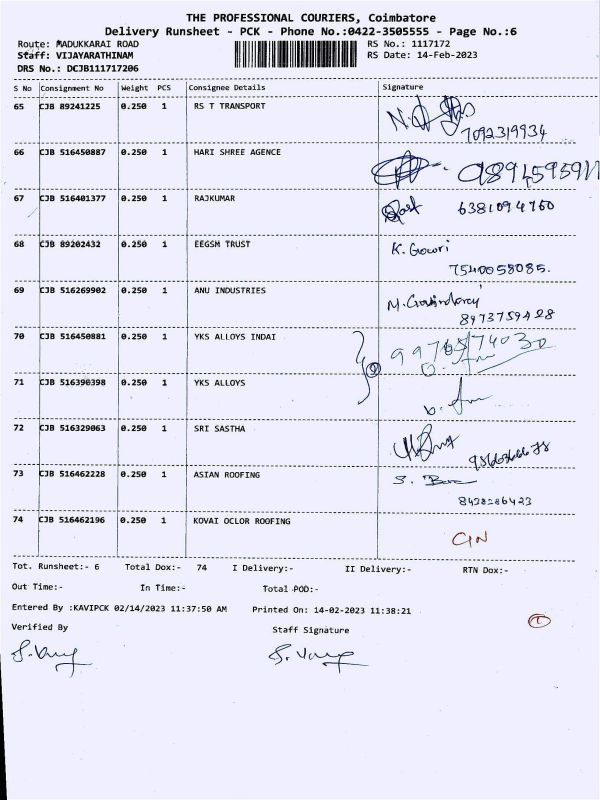 THE PROFESSIONAL COURIERS, Coimbatore
Delivery Runsheet - PCK - Phone No.:0422-3505555 - Page No.:6
Route: MADUKKARAI ROAD RS No.: 1117172
Staff: VIJAYARATHINAM RS Date: 14-Feb-2023
DRS No.: DCJB111717206
S No Consignment No Weight PCS Consignee Details Signature
65 CJB 89241225 0.250 1 RS T TRANSPORT
7092319934
66 CJB 516450887 0.250 1 HARI SHREE AGENCE
67 CJB 516401377 0.250 1 RAJKUMAR 6381094760
68 CJB 89202432 0.250 1 EEGSM TRUST K. Gowri
7540058085.
69 CJB 516269902 0.250 1 ANU INDUSTRIES
8973759428
70 CJB 516450881 0.250 1 YKS ALLOYS INDAI
71 CJB 516390398 0.250 1 YKS ALLOYS
72 CJB 516329063 0.250 1 SRI SASTHA
73 CJB 516462228 0.250 1 ASIAN ROOFING
8438286423
74 CJB 516462196 0.250 1 KOVAI OCLOR ROOFING
Tot. Runsheet:- 6 Total Dox:- 74 I Delivery:- II Delivery:- RTN Dox:-
Out Time:- In Time:- Total POD:-
Entered By :KAVIPCK 02/14/2023 11:37:50 AM Printed On: 14-02-2023 11:38:21
Verified By Staff Signature